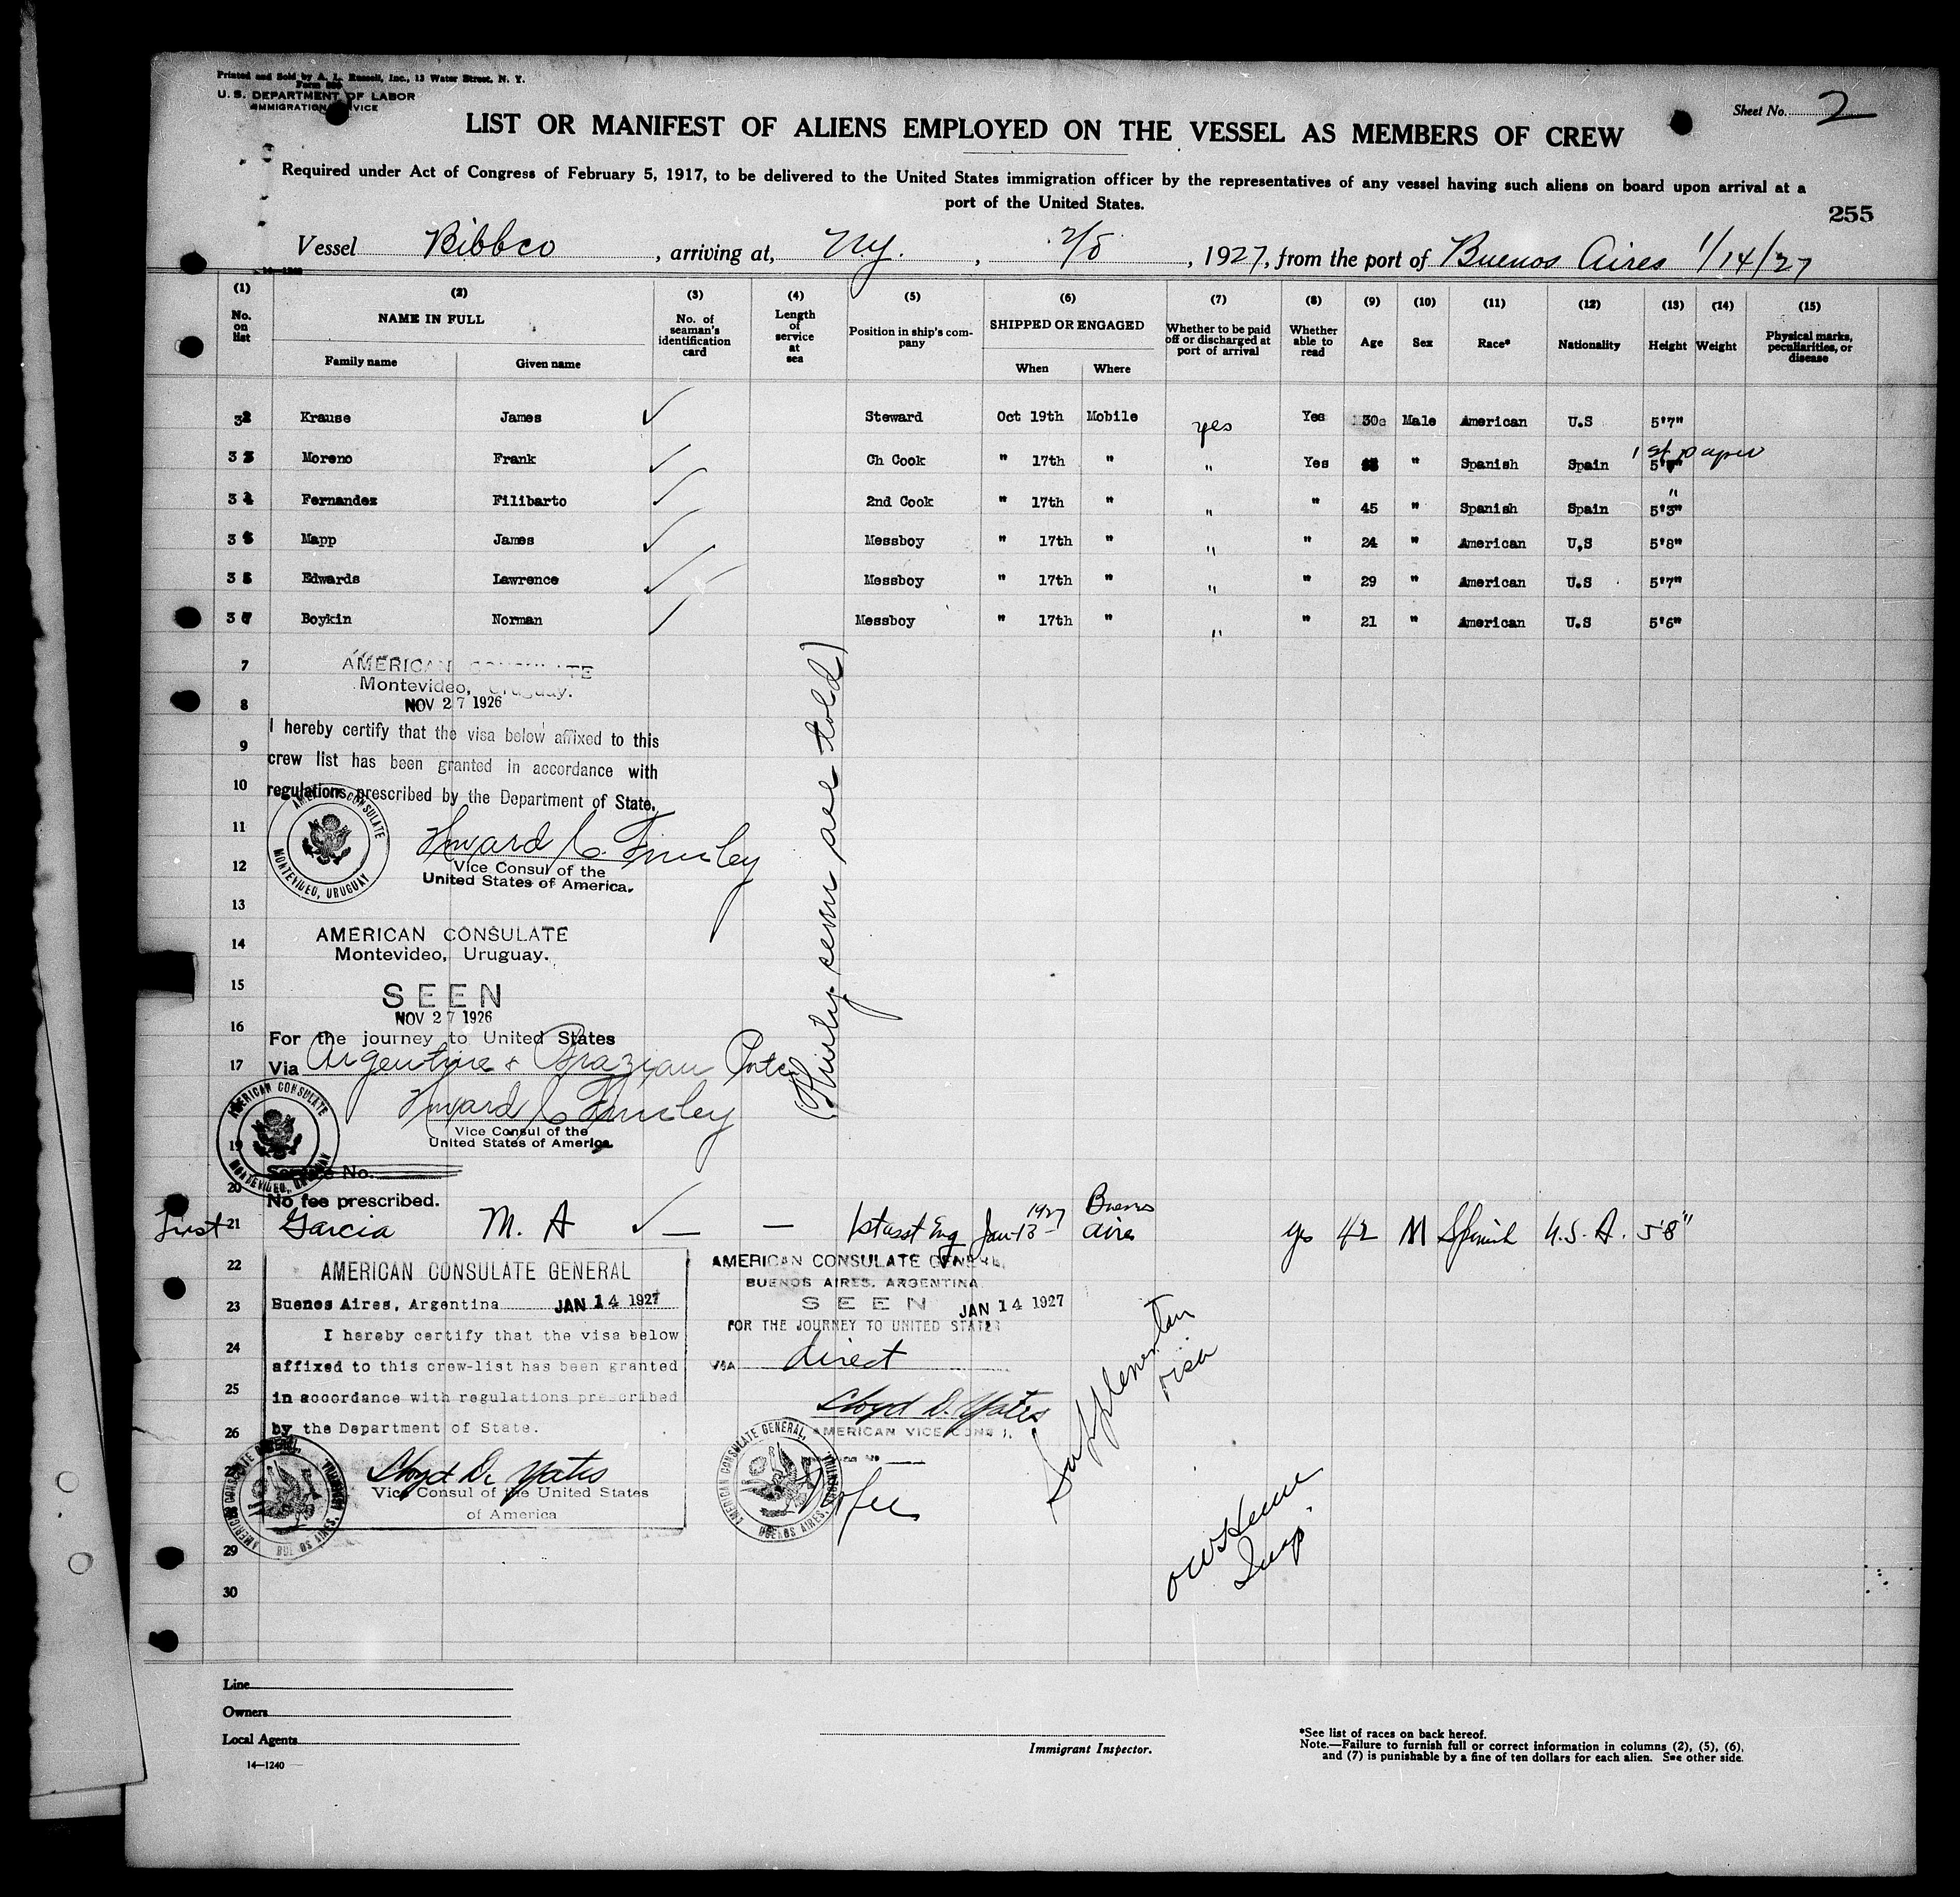 Printed and Sold by A. L. Russell, Inc., 13 Water Street, N. Y.
Form 680
U. S. DEPARTMENT OF LABOR
IMMIGRATION SERVICE
Sheet No. 2
LIST OR MANIFEST OF ALIENS EMPLOYED ON THE VESSEL AS MEMBERS OF CREW
Required under Act of Congress of February 5, 1917, to be delivered to the United States immigration officer by the representatives of any vessel having such aliens on board upon arrival at a
port of the United States.
255
Vessel Bibbco, arriving at, NY., 2/5, 1927, from the port of Buenos Aires 1/14/27
14-1240
(1) (2) (3) (4) (5) (6) (7) (8) (9) (10) (11) (12) (13) (14) (15)
No. on list
NAME IN FULL
Family name Given name
No. of seaman's identification card
Length of service at sea
Position in ship's company
SHIPPED OR ENGAGED
When Where
Whether to be paid off or discharged at port of arrival
Whether able to read
Age
Sex
Race*
Nationality
Height
Weight
Physical marks, peculiarities, or disease
32 Krause James ✓ Steward Oct 19th Mobile yes Yes 30 Male American U.S 5'7"
33 Moreno Frank ✓ Ch Cook " 17th " " Yes " Spanish Spain 5' 1st paper
34 Fernandez Filibarto ✓ 2nd Cook " 17th " " " 45 " Spanish Spain 5'3" "
35 Mapp James ✓ Messboy " 17th " " " 24 " American U,S 5'8"
36 Edwards Lawrence ✓ Messboy " 17th " " " 29 " American U.S 5'7"
37 Boykin Norman Messboy " 17th " " " 21 " American U.S 5'6"
7
AMERICAN CONSULATE
Montevideo, Uruguay.
8
NOV 27 1926
I hereby certify that the visa below affixed to this
9
crew list has been granted in accordance with
10
regulations prescribed by the Department of State.
AMERICAN CONSULATE
MONTEVIDEO, URUGUAY
11
Howard C. Finsley
12
Vice Consul of the
United States of America.
13
(Thirty seven all told)
14
AMERICAN CONSULATE
Montevideo, Uruguay.
15
SEEN
NOV 27 1926
16
For the journey to United States
17
Via Argentine & Brazilian Ports
Howard C Finsley
AMERICAN CONSULATE
MONTEVIDEO, URUGUAY
Vice Consul of the
United States of America.
19
Service No.
20
No fee prescribed.
First 21 Garcia M. A ✓ — — 1st asst Eng Jan-13- 1927 Buenos Aires yes 42 M Spanish U.S.A. 5'8"
22
AMERICAN CONSULATE GENERAL
23
Buenos Aires, Argentina JAN 14 1927
I hereby certify that the visa below
24
affixed to this crew-list has been granted
25
in accordance with regulations prescribed
26
by the Department of State.
Lloyd D. Yates
Vice Consul of the United States
of America
AMERICAN CONSULATE GENERAL,
BUENOS AIRES, ARGENTINA.
AMERICAN CONSULATE GENERAL,
BUENOS AIRES, ARGENTINA.
SEEN JAN 14 1927
FOR THE JOURNEY TO UNITED STATES
VIA direct
Lloyd D. Yates
AMERICAN VICE CONSUL
No fee
AMERICAN CONSULATE GENERAL,
BUENOS AIRES, ARGENTINA.
visa
Insp.
29
30
Line
Owners
Local Agents
14—1240
Immigrant Inspector.
*See list of races on back hereof.
Note.—Failure to furnish full or correct information in columns (2), (5), (6),
and (7) is punishable by a fine of ten dollars for each alien. See other side.